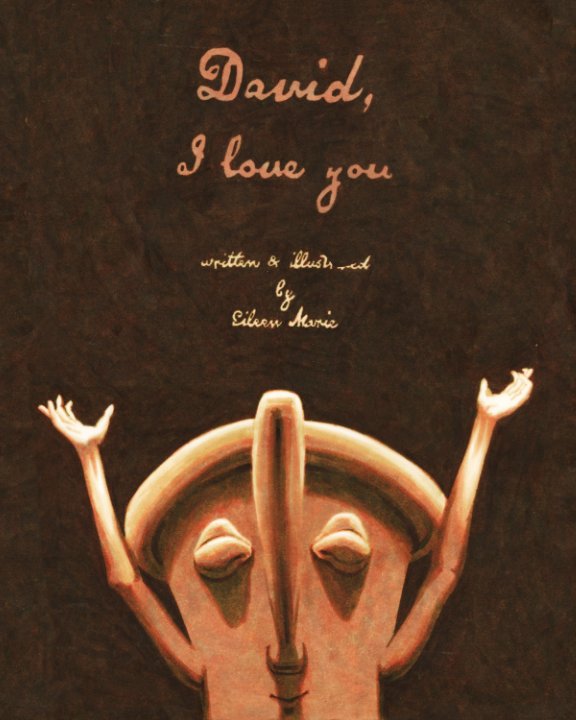 David,
I love you
written & illustrated
by
Eileen Marie